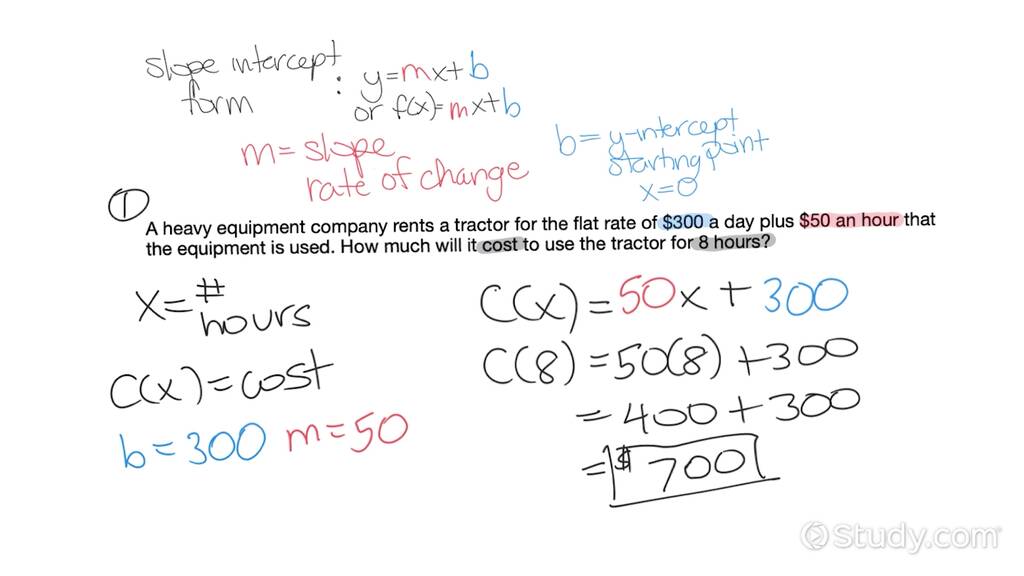 slope intercept
form
: y=mx+b
or f(x)=mx+b
m= slope
rate of change
b= y-intercept
starting point
x=0
①
A heavy equipment company rents a tractor for the flat rate of $300 a day plus $50 an hour that
the equipment is used. How much will it cost to use the tractor for 8 hours?
x= #
hours
C(x)=cost
b=300 m=50
C(x)=50x+300
C(8)=50(8)+300
=400+300
=$700
Study.com